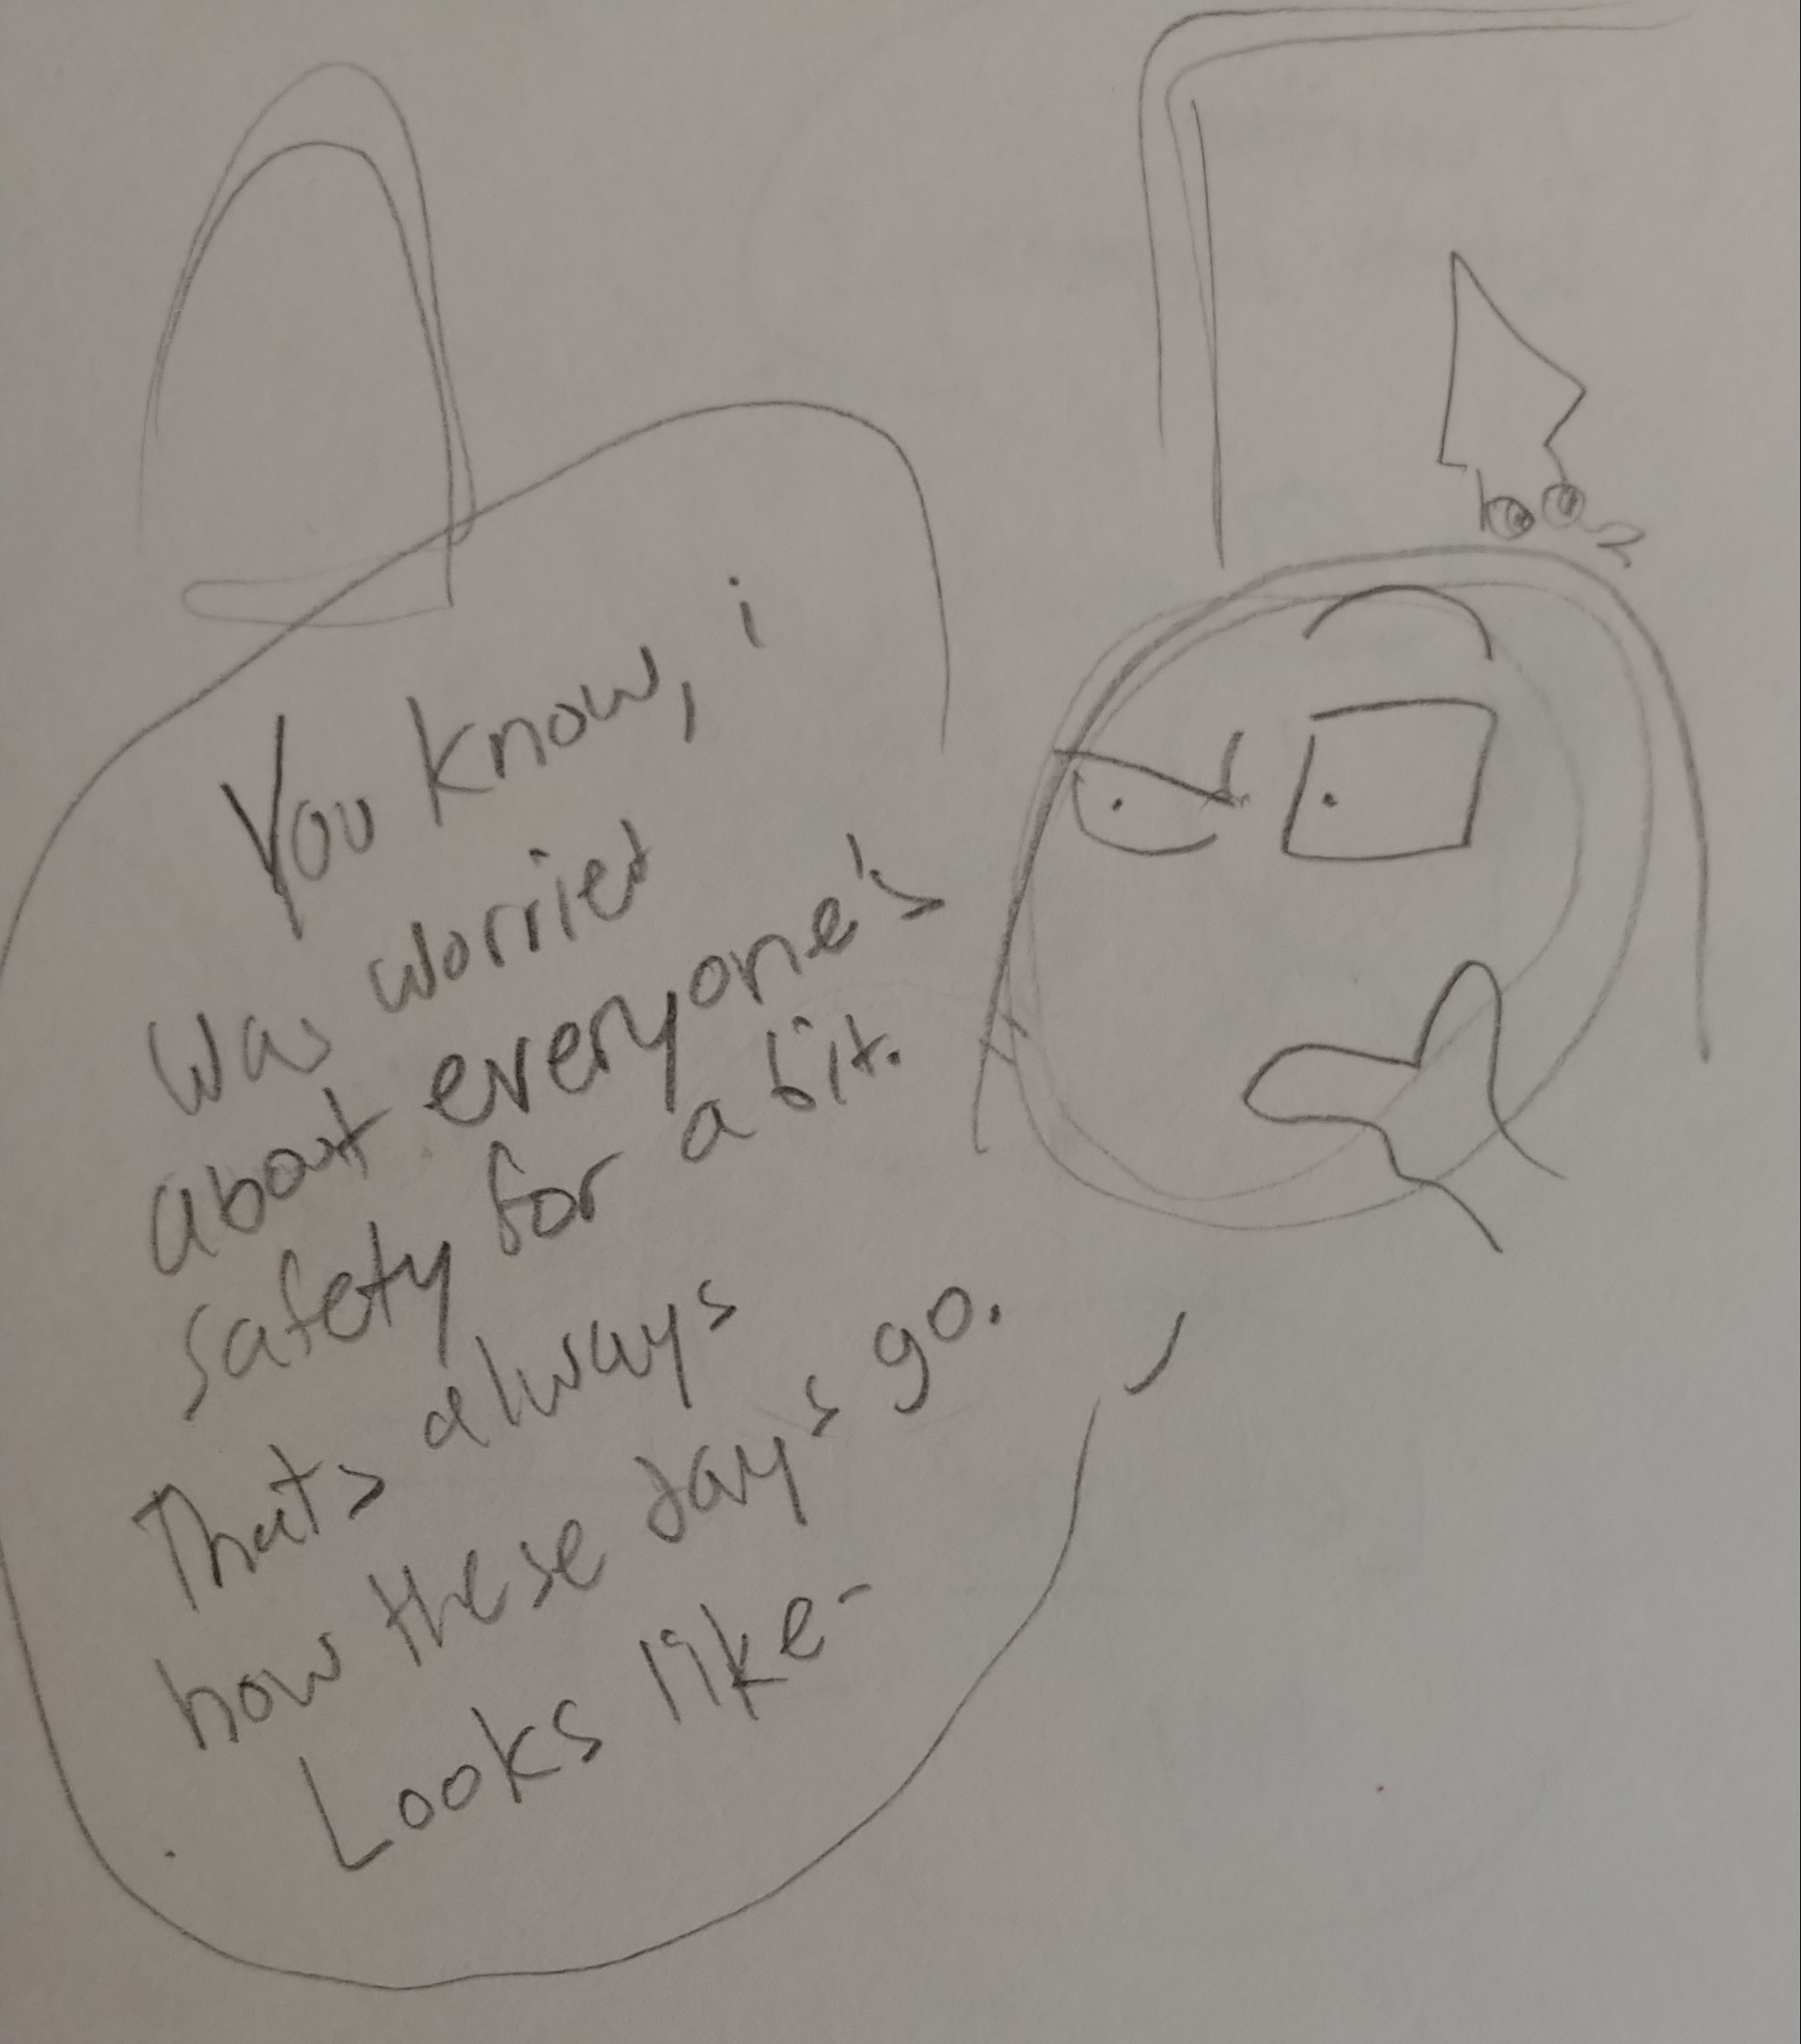 You know, i
was worried
about everyone's
safety for a bit.
Thats always
how these days go.
Looks like-